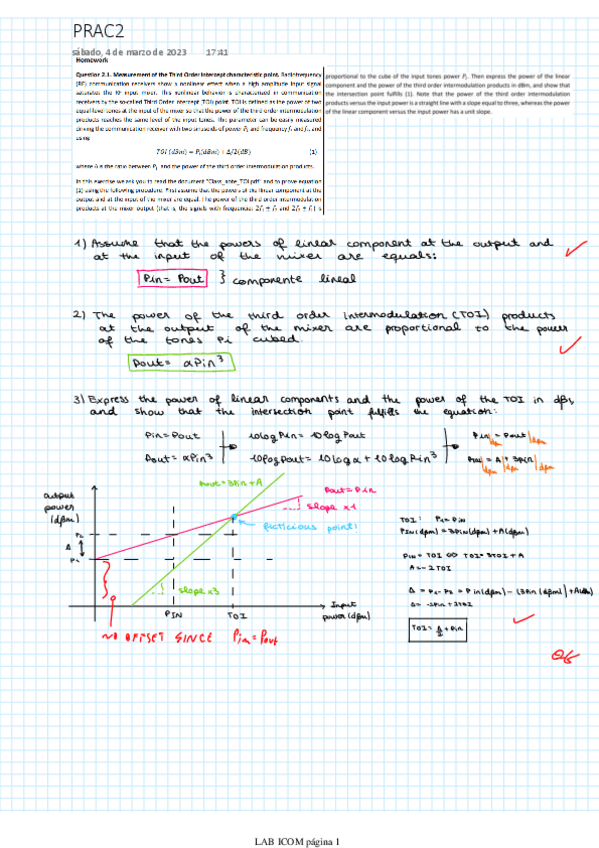 PRAC2
sábado, 4 de marzo de 2023 17:41
Homework
Question 2.1. Measurement of the Third Order Intercept characteristic point. Radiofrequency
(RF) communication receivers show a nonlinear effect when a high amplitude input signal
saturates the RF input mixer. This nonlinear behavior is characterized in communication
receivers by the so-called Third Order Intercept (TOI) point. TOI is defined as the power of two
equal-level tones at the input of the mixer so that the power of the third order intermodulation
products reaches the same level of the input tones. This parameter can be easily measured
driving the communication receiver with two sinusoids of power Pi and frequency f1 and f2, and
using
TOI (dBm) = Pi(dBm) + Δ/2(dB) (1)
where Δ is the ratio between Pi and the power of the third order intermodulation products.
In this exercise we ask you to read the document "Class_note_TOI.pdf" and to prove equation
(1) using the following procedure. First assume that the powers of the linear component at the
output and at the input of the mixer are equal. The power of the third order intermodulation
products at the mixer output (that is, the signals with frequencies 2f1 ± f2 and 2f2 ± f1) is
proportional to the cube of the input tones power Pi. Then express the power of the linear
component and the power of the third order intermodulation products in dBm, and show that
the intersection point fulfills (1). Note that the power of the third order intermodulation
products versus the input power is a straight line with a slope equal to three, whereas the power
of the linear component versus the input power has a unit slope.
1) Assume that the powers of linear component at the output and
at the input of the mixer are equals:
Pin = Pout } componente lineal
2) The power of the third order Intermodulation (TOI) products
at the output of the mixer are proportional to the power
of the tones Pi cubed.
Pout = αPin³
3) Express the power of linear components and the power of the TOI in dBm,
and show that the intersection point fulfills the equation:
Pin = Pout 10log Pin = 10log Pout Pin|dBm = Pout|dBm
Pout = αPin³ 10log Pout = 10log α + 10log Pin³ Pout|dBm = A|dBm + 3Pin|dBm
Pout = 3Pin + A
Pout = Pin
slope x1
ficticious point!
output
power
(dBm)
P2
Δ
P1
slope x3
PIN
TOI
Input
power (dBm)
NO OFFSET SINCE Pin = Pout
TOI: P1 = Pin
PIN(dBm) = 3PIN(dBm) + A(dBm)
PIN = TOI ⇔ TOI = 3TOI + A
A = -2TOI
Δ = P1 - P2 = Pin(dBm) - (3Pin(dBm) + A(dBm))
Δ = -2Pin + 2TOI
TOI = Δ/2 + Pin
LAB ICOM página 1